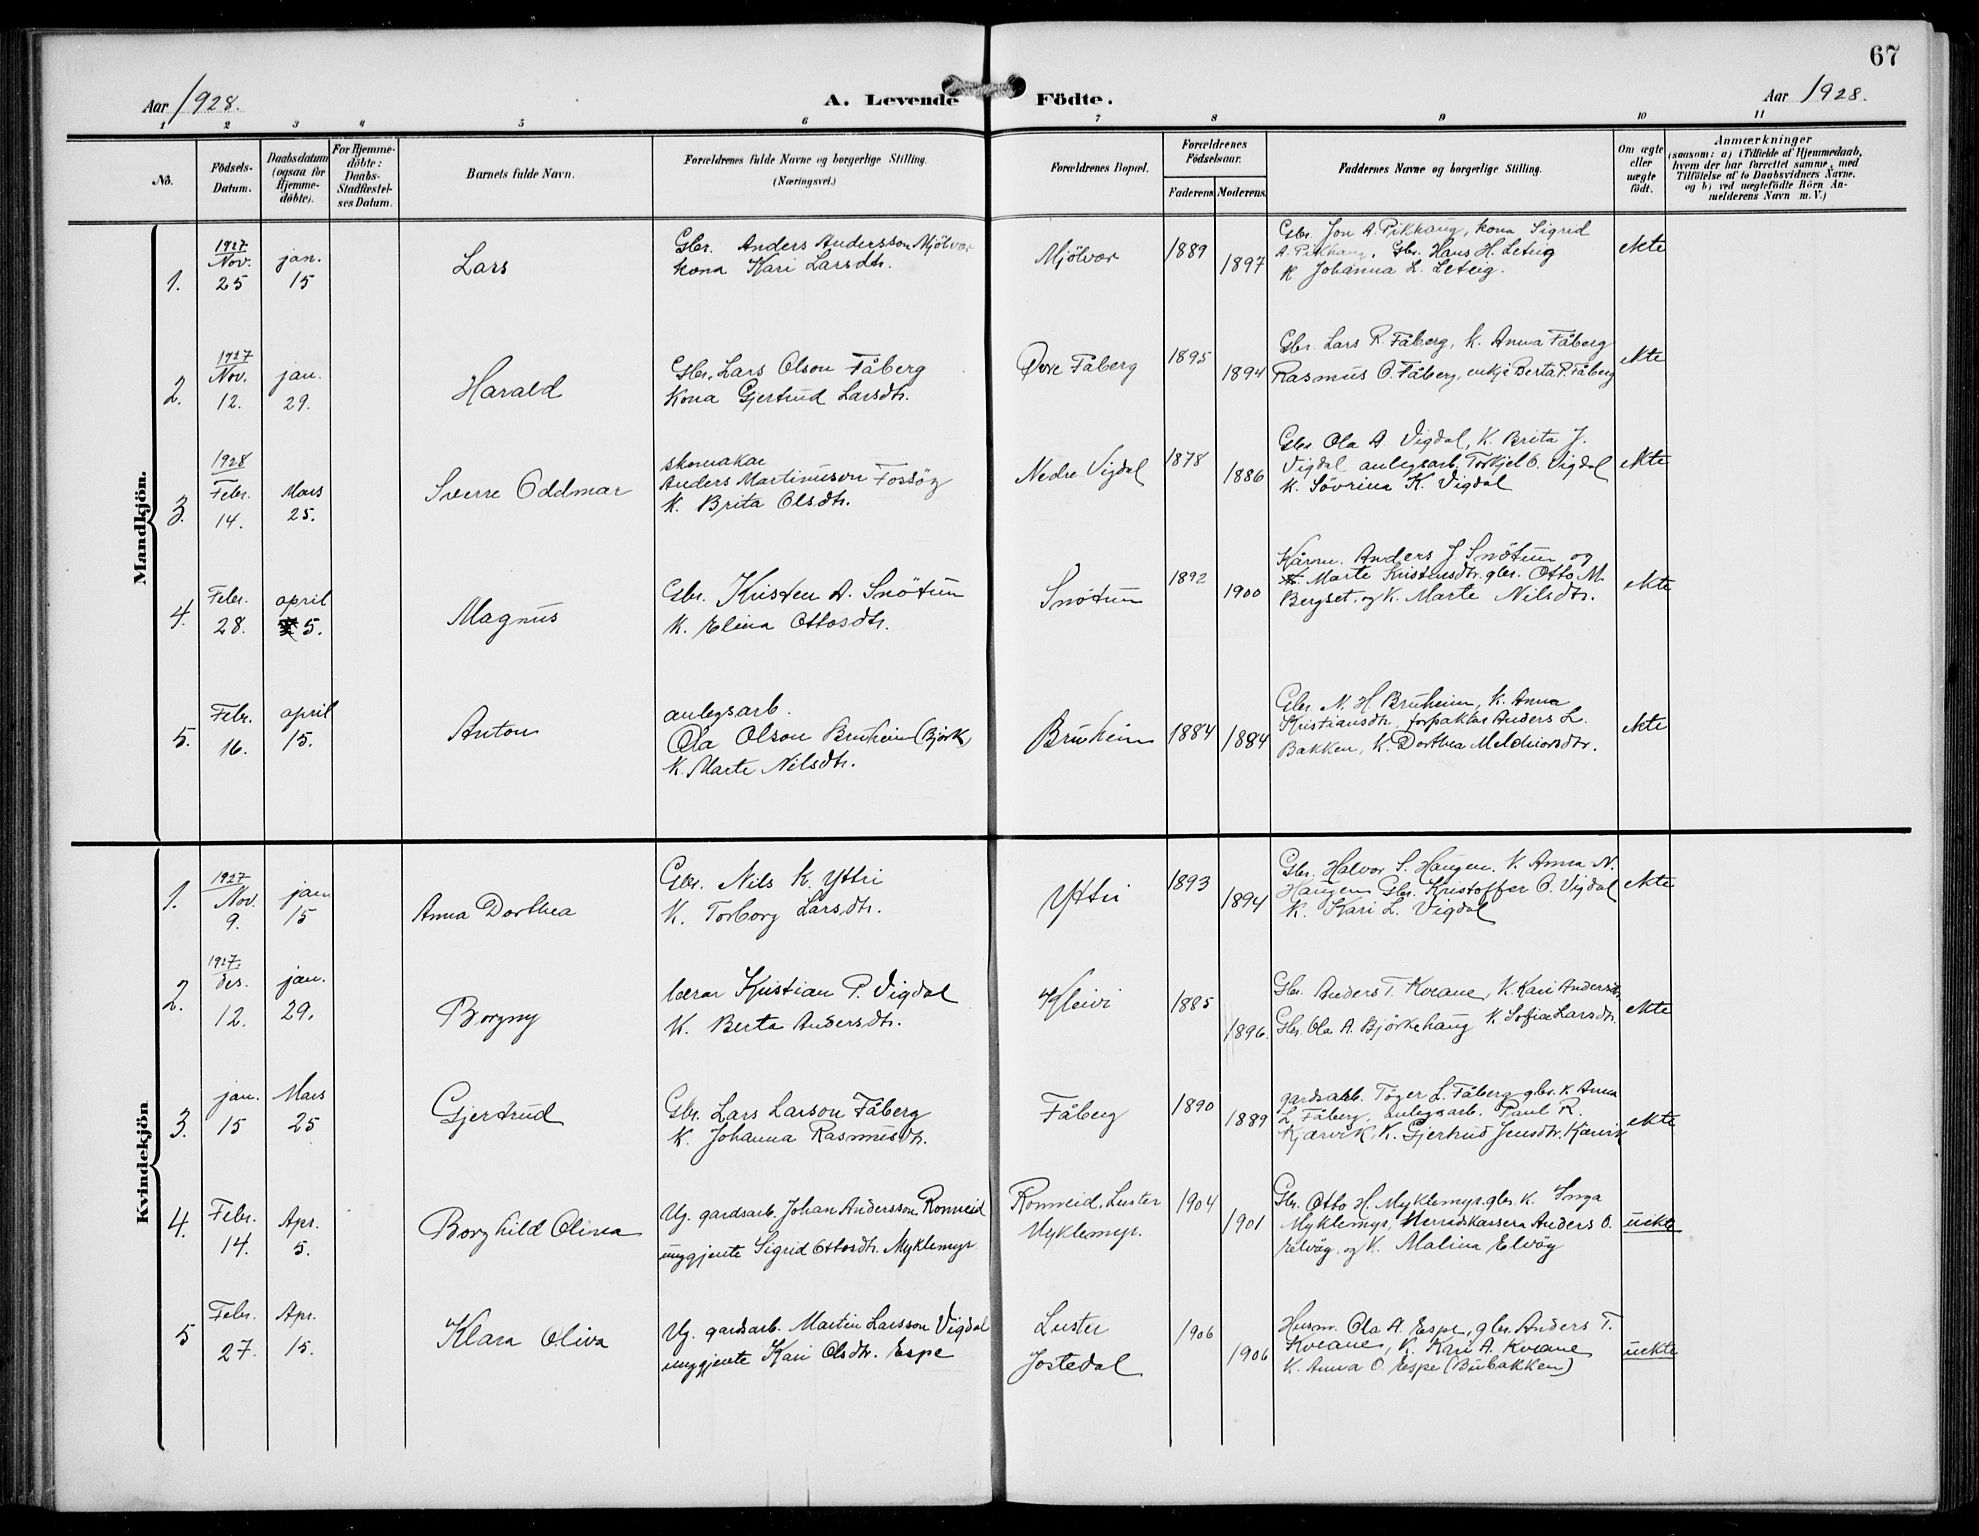 67
Aar 1928.
A. Levende Födte.
Aar 1928.
1 2 3 4 5 6 7 8 9 10 11
No.
Födsels-Datum.
Daabsdatum (ogsaa for Hjemme-döbte).
For Hjemme-döbte: Daabs-Stadfæstel-ses Datum.
Barnets fulde Navn.
Forældrenes fulde Navne og borgerlige Stilling.
(Næringsvei.)
Forældrenes Bopæl.
Forældrenes Födselsaar.
Faderens Moderens.
Faddernes Navne og borgerlige Stilling.
Om ægte eller uægte födt.
Anmærkninger
(saasom: a) i Tilfælde af Hjemmedaab,
hvem der har forrettet samme, med
Tilföielse af to Daabsvidners Navne,
og b) ved uægtefödte Börn An-
melderens Navn m. V.)
Mandkjön.
1. 1927 Nov. 25 jan. 15 Lars
Gbr. Anders Andersson Mjölvor
kona Kari Larsdtr.
Mjölvor 1889 1897
Gbr. Jon A. Pikhaug, kona Sigrid
A. Pikhaug, Gbr. Hans H. Leteig
K Johanna L. Leteig.
ekte
2. 1927 Nov. 12. jan. 29. Harald
Gbr. Lars Olson Fåberg
Kona Gjertrud Larsdtr.
Øvre Fåberg 1895 1894
Gbr. Lars R. Fåberg, K. Anna Fåberg
Rasmus O. Fåberg, enkje Berta P. Fåberg
ekte
3. 1928 Febr. 14. Mars 25. Sverre Oddmar
skomakar
Anders Martinuson Fossöy
K. Brita Olsdtr.
Nedre Vigdal 1878 1886
Gbr Ola A. Vigdal, K. Brita J.
Vigdal anlegsarb. Torkjel O. Vigdal
K. Sövrina K. Vigdal
ekte
4. Febr. 28. april 5. Magnus
Gbr. Kristen A. Snötun
K. Elina Ottosdtr.
Snötun 1892 1900
Kårm. Anders J Snötun og
K. Marte Kristensdtr. gbr. Otto M.
Bergset. og K. Marte Nilsdtr.
ekte
5. Febr. 16. april 15. Anton
anlegsarb.
Ola Olson Bruheim (Bjørk)
K. Marte Nilsdtr.
Bruheim 1884 1884
Gbr. N. H. Bruheim, K. Anna
Kristiansdtr, forpaktar Anders L.
Bakken, K. Dorthea Melchiorsdtr.
ekte
Kvindekjön
1. 1927 Nov. 9. jan 15 Anna Dorthea
Gbr. Nils K. Yttri
K. Torborg Larsdtr.
Yttri 1893 1894
Gbr. Halvor S. Haugen. K. Anna N.
Haugen Gbr. Kristoffer O. Vigdal
K. Kari L. Vigdal
ekte
2. 1927. des. 12. jan. 29. Borgny
lærar Kristian P. Vigdal
K. Berta Andersdtr.
Kleivi 1885 1896.
Gbr. Anders T. Kveane, K. Kari Andersdtr.
Gbr. Ola A. Bjørkehaug K. Sofiae Larsdtr.
ekte
3. jan. 15 Mars 25 Gjertrud
Gbr. Lars Larson Fåberg
K. Johanna Rasmusdtr.
Fåberg 1890 1889
gardsarb. Töger L. Fåberg gbr. K. Anna
L. Fåberg, anlegsarb. Paul R.
Kjærvik, K. Gjertrud Jensdtr. Kjærvik
ekte
4. Febr. 14. Apr. 5. Borghild Olina
Ug. gardsarb. Johan Andersson Ronneid
ungjente Sigrid Ottosdtr. Myklemyr
Ronneid, Luster
Myklemyr.
1904 1901
Gbr. Otto H. Myklemyr. gbr. K. Inga
Myklemyr, Herradskassera Anders O.
Elvøy, og K. Malina Elvøy
uekte
5 Febr. 27. Apr. 15. Klara Oliva
Ug. gardsarb. Martin Larsson Vigdal
ungjente Kari Olsdtr. Espe
Luster
Jostedal
1906 1906
Husm. Ola A. Espe, gbr. Anders T.
Kveane, K. Kari A. Kveane
K. Anna O. Espe (Bubakken)
uekte